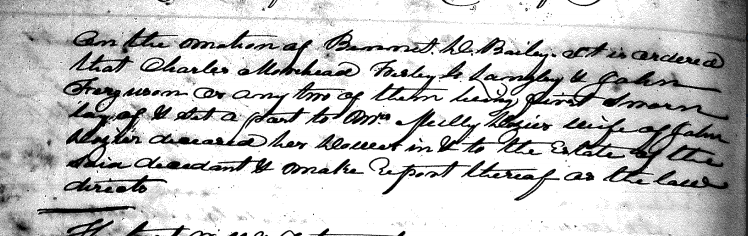 On the motion of Bennet W Baily. It is ordered
that Charles Morehead Fosley C Langley & John
Ferguson or any two of them being first Sworn
lay of & Set a part to Mrs Milly wife of John
deceased her Dower in & to the Estate of the
Said decedant & make report thereof as the law
directs